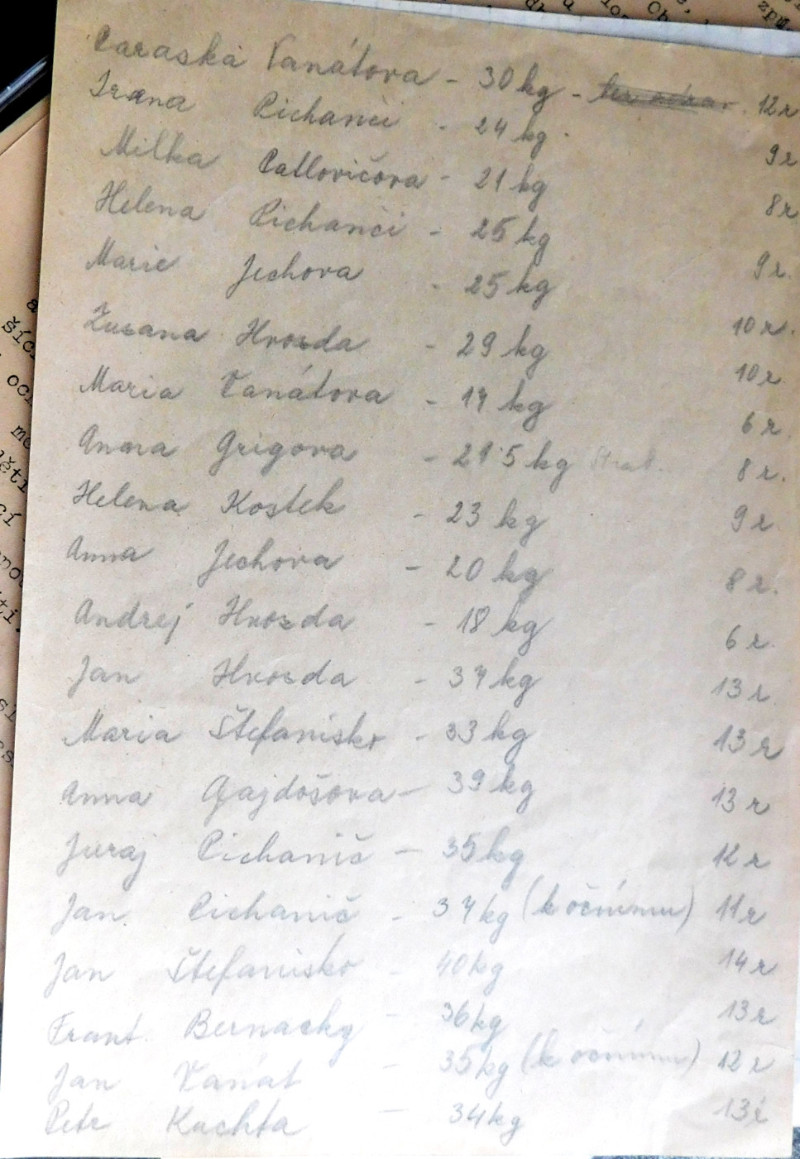 Paraska Vanátova - 30 kg - 12 r
Irena Pichanči - 24 kg. 9 r
Milka Pallovičova - 21 kg 8 r
Helena Pichanči - 25 kg 9 r.
Marie Jechova - 25 kg 10 r.
Zuzana Hvozda - 29 kg 10 r
Maria Vanátova - 17 kg 6 r.
Anna Grigova - 21.5 kg 8 r.
Helena Kostek - 23 kg 9 r
Anna Jechova - 20 kg 8 r.
Andrej Hvozda - 18 kg 6 r
Jan Hvozda - 37 kg 13 r
Maria Štefanisko - 33 kg 13 r
Anna Gajdošova - 39 kg 13 r
Juraj Pichanič - 35 kg 12 r
Jan Pichanič - 37 kg (k očnímu) 11 r
Jan Štefanisko - 40 kg 14 r
Frant. Bernacky - 36 kg 13 r
Jan Vanat - 35 kg (k očnímu) 12 r
Petr Kuchta - 34 kg 13 r